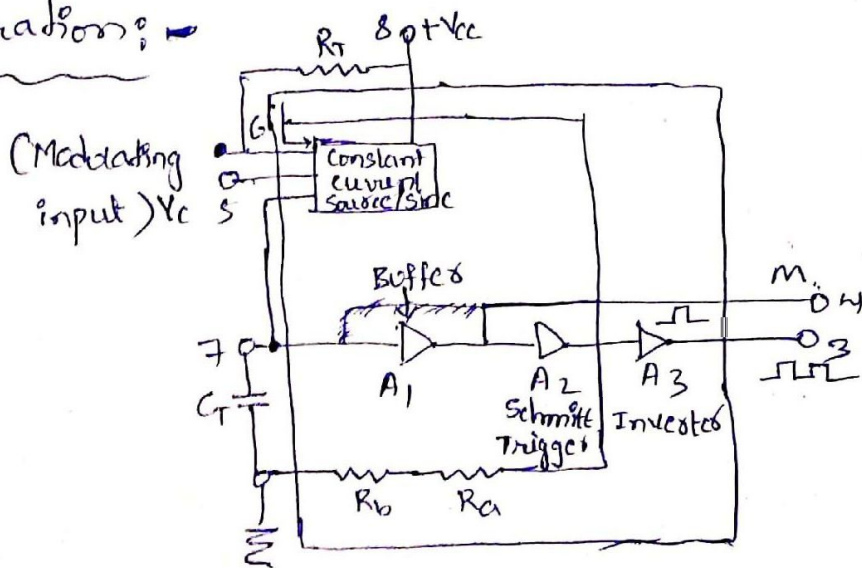 ration:-
RT 8 +Vcc
6
(Modulating
input) Vc 5
constant
current
source/sink
Buffer
7
A1
A2
A3
4
3
CT
Schmitt
Trigger
Inverter
Rb
Ra